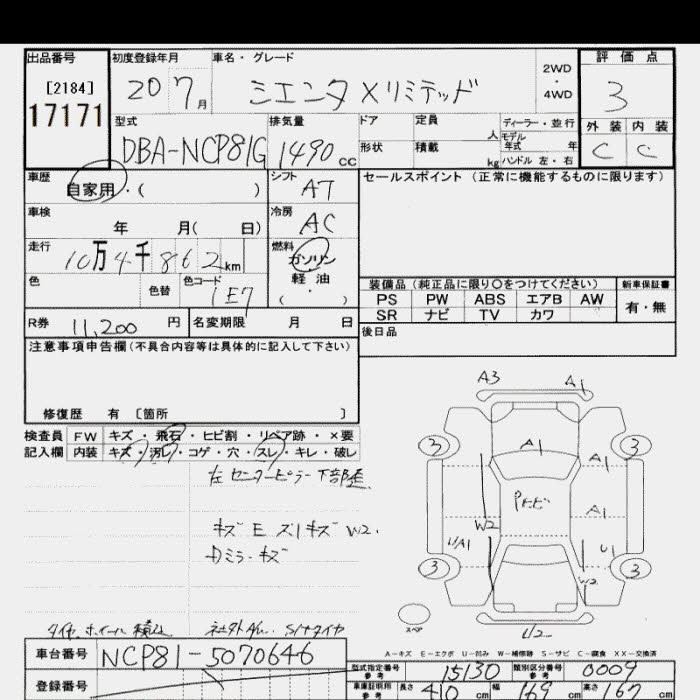 出品番号
[2184]
17171
初度登録年月
20 7月
車名・グレード
シエンタ Xリミテッド
2WD
・
4WD
評価点
3
外装 内装
C C
型式
DBA-NCP81G
排気量
1490 cc
ドア
形状
定員
人
積載
kg
ディーラー・並行
モデル
年式 年
ハンドル 左・右
車歴
自家用・( )
シフト
AT
車検
年 月( 日)
冷房
AC
走行
10万4千862km
燃料
ガソリン
軽油
( ・ )
色
色替
色コード
1E7
R券
11,200円
名変期限 月 日
セールスポイント (正常に機能するものに限ります)
装備品(純正品に限り○をつけてください)
新車保証書
PS PW ABS エアB AW
有・無
SR ナビ TV カワ
後日品
注意事項申告欄(不具合内容等は具体的に記入して下さい)
修復歴 有 〔箇所 〕
検査員
記入欄
FW キズ・飛石・ヒビ割・リペア跡・×要
内装 キズ・汚レ・コゲ・穴・スレ・キレ・破レ
左センターピラー下部歪
キズ E ズ1キズ W2.
ミラーキズ
A3 A1
3 A1 A1 3
Pヒビ
A1
W2
U/A1 U1
3 W2 3
スペア
U2
タイヤ,ホイール積込
社外AW. S1ナタイヤ
A−キズ E−エクボ U−凹み W−補修跡 S−サビ C−腐食 XX−交換済
車台番号
NCP81-5070646
登録番号
型式指定番号
参考
15130
類別区分番号
参考
0009
車庫証明用
参考
長さ 410 cm
幅 169 cm
高さ 167 cm